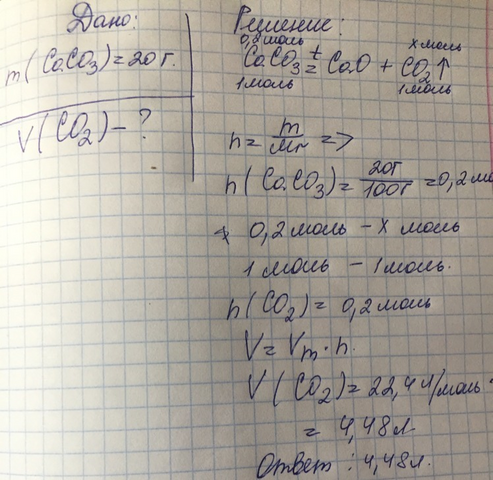 Дано:
m(CaCO3)=20г.
V(CO2)-?
Решение:
0,2моль
x моль
CaCO3 t= CaO + CO2↑
1моль
1моль
n= m/Mr =>
n(CaCO3)= 20г/100г =0,2мо
0,2моль - x моль
1 моль - 1моль.
n(CO2)= 0,2моль
V= Vm·n.
V(CO2)=22,4л/моль·
= 4,48л.
Ответ: 4,48л.